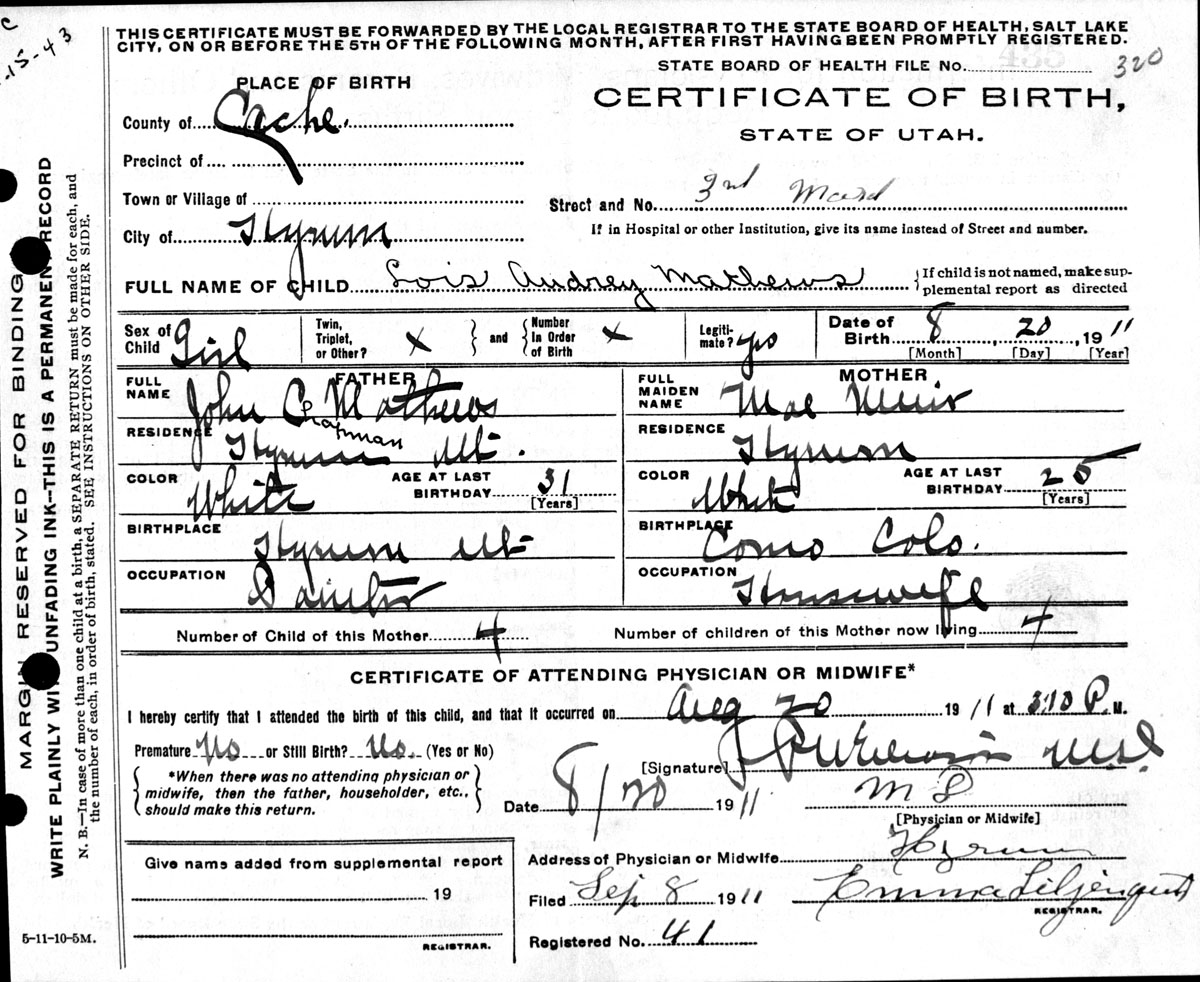 C
-15-43
THIS CERTIFICATE MUST BE FORWARDED BY THE LOCAL REGISTRAR TO THE STATE BOARD OF HEALTH, SALT LAKE
CITY, ON OR BEFORE THE 5TH OF THE FOLLOWING MONTH, AFTER FIRST HAVING BEEN PROMPTLY REGISTERED.
STATE BOARD OF HEALTH FILE NO. 320
PLACE OF BIRTH
CERTIFICATE OF BIRTH,
STATE OF UTAH.
County of Cache.
Precinct of
Town or Village of
Street and No. 3rd Ward
City of Hyrum
If in Hospital or other Institution, give its name instead of Street and number.
FULL NAME OF CHILD Lois Audrey Mathews
{If child is not named, make sup-
plemental report as directed
Sex of Child Girl
Twin, Triplet, or Other? X
and
Number In Order of Birth X
Legiti-mate? yes
Date of Birth 8, 20, 1911
[Month] [Day] [Year]
FATHER
FULL NAME John C Mathews
Chapman
RESIDENCE Hyrum Ut.
COLOR White
AGE AT LAST BIRTHDAY 31
[Years]
BIRTHPLACE Hyrum Ut
OCCUPATION Painter
MOTHER
FULL MAIDEN NAME Mae Muir
RESIDENCE Hyrum
COLOR White
AGE AT LAST BIRTHDAY 25
[Years]
BIRTHPLACE Como Colo.
OCCUPATION Housewife
Number of Child of this Mother 4
Number of children of this Mother now living 4
CERTIFICATE OF ATTENDING PHYSICIAN OR MIDWIFE*
I hereby certify that I attended the birth of this child, and that it occurred on Aug 20 1911 at 3:10 P. M.
Premature No or Still Birth? No. (Yes or No)
{*When there was no attending physician or
midwife, then the father, householder, etc.,
should make this return.}
[Signature]
Date 8/20 1911
M D
[Physician or Midwife]
Give name added from supplemental report
19
REGISTRAR.
Address of Physician or Midwife Hyrum
Filed Sep 8 1911 Emma Liljenquist
REGISTRAR.
Registered No. 41
5-11-10-5M.
MARGIN RESERVED FOR BINDING
WRITE PLAINLY WITH UNFADING INK—THIS IS A PERMANENT RECORD
N. B.—In case of more than one child at a birth, a SEPARATE RETURN must be made for each, and
the number of each, in order of birth, stated. SEE INSTRUCTIONS ON OTHER SIDE.